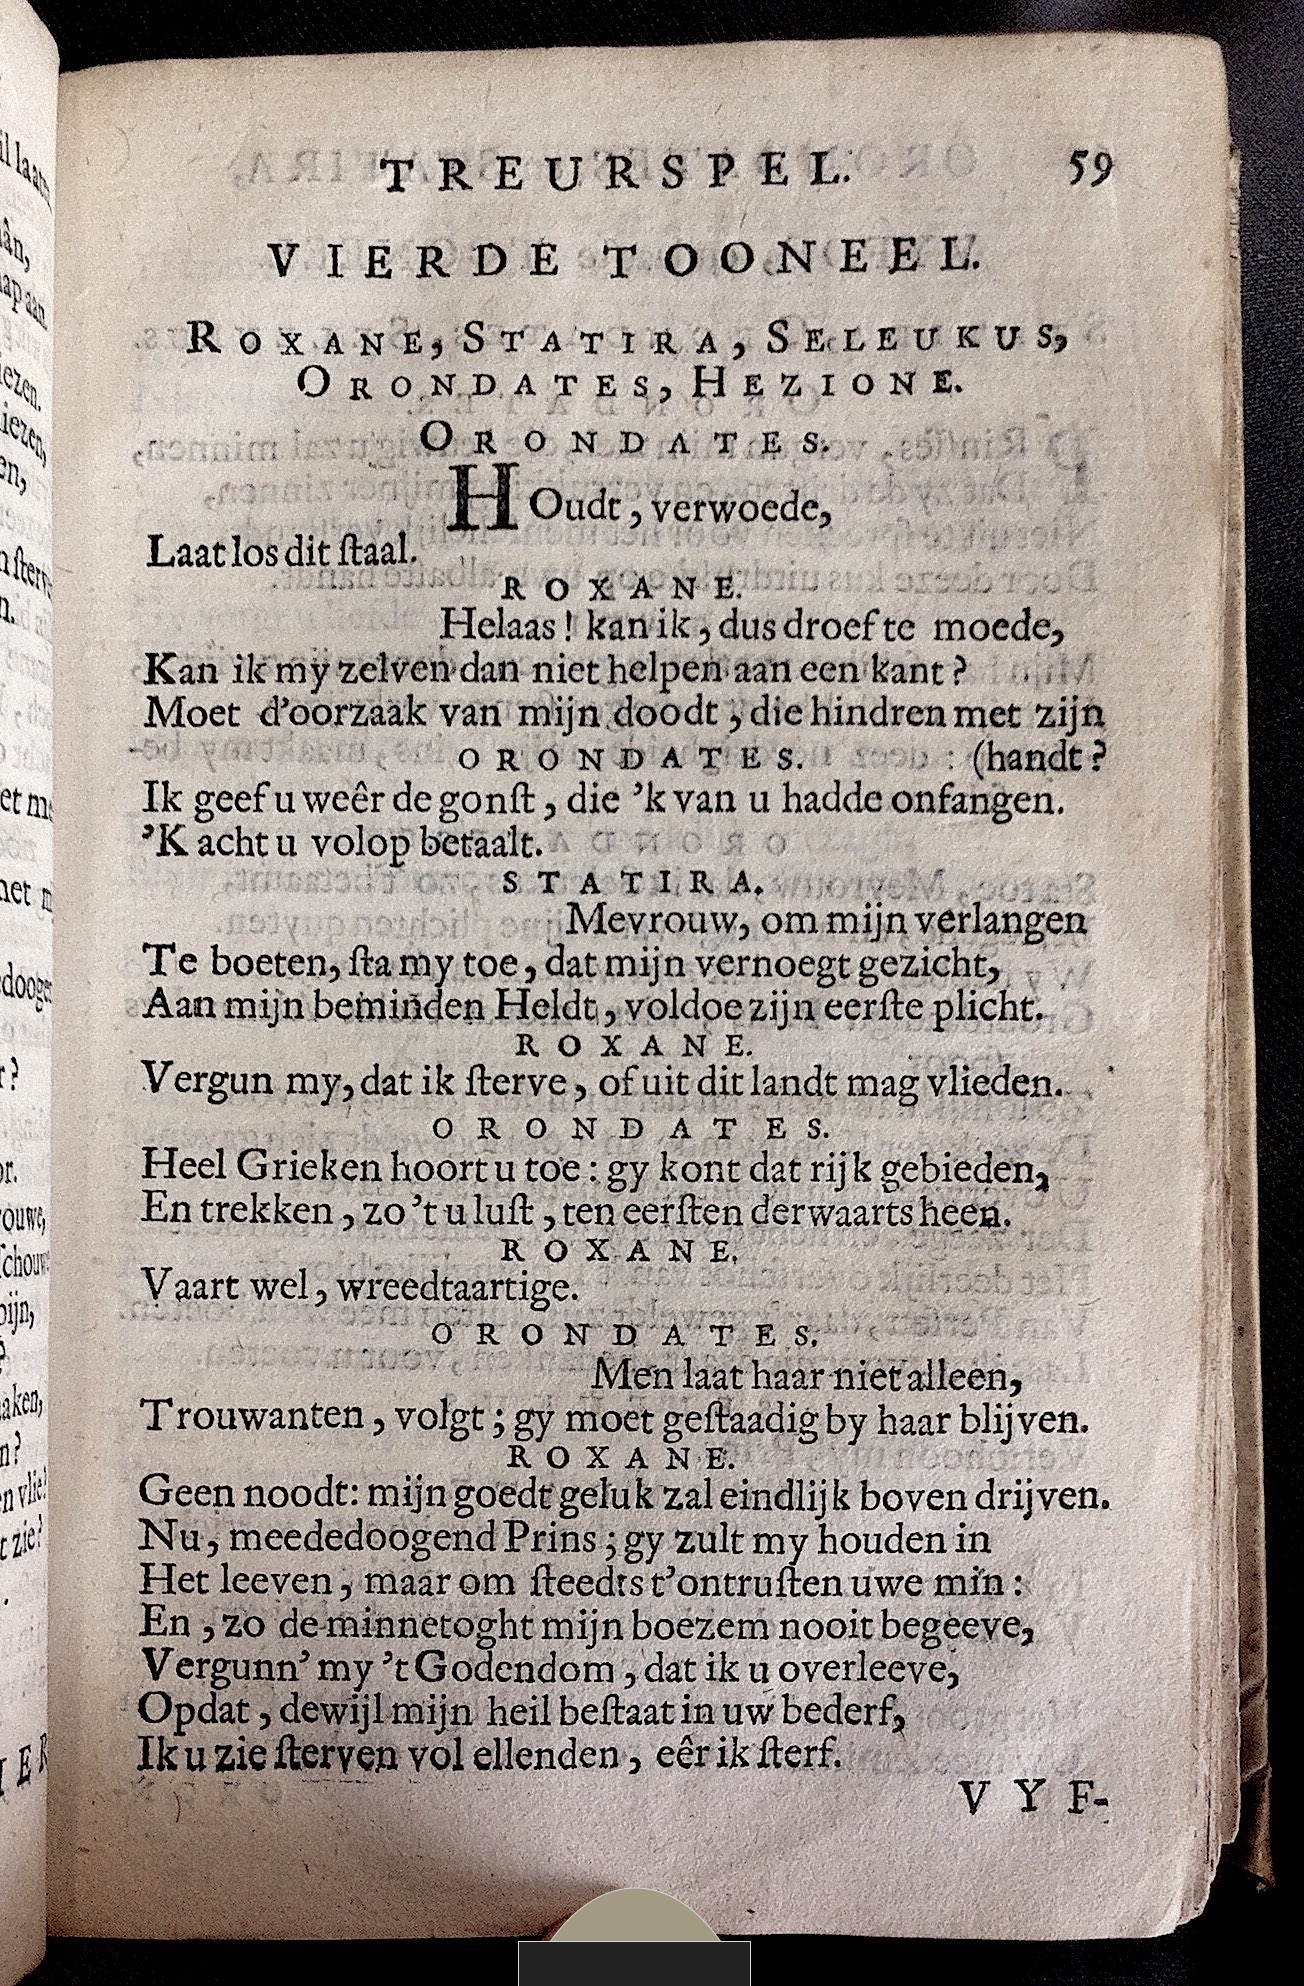 TREURSPEL. 59
VIERDE TOONEEL.
ROXANE, STATIRA, SELEUKUS,
ORONDATES, HEZIONE.
ORONDATES.
HOudt, verwoede,
Laat los dit ſtaal.
ROXANE.
Helaas! kan ik, dus droef te moede,
Kan ik my zelven dan niet helpen aan een kant?
Moet d'oorzaak van mijn doodt, die hindren met zijn
ORONDATES. (handt?
Ik geef u weêr de gonſt, die 'k van u hadde onfangen.
'K acht u volop betaalt.
STATIRA.
Mevrouw, om mijn verlangen
Te boeten, ſta my toe, dat mijn vernoegt gezicht,
Aan mijn beminden Heldt, voldoe zijn eerſte plicht.
ROXANE.
Vergun my, dat ik ſterve, of uit dit landt mag vlieden.
ORONDATES.
Heel Grieken hoort u toe: gy kont dat rijk gebieden,
En trekken, zo 't u luſt, ten eerſten derwaarts heen.
ROXANE.
Vaart wel, wreedtaartige.
ORONDATES.
Men laat haar niet alleen,
Trouwanten, volgt; gy moet geſtaadig by haar blijven.
ROXANE.
Geen noodt: mijn goedt geluk zal eindlijk boven drijven.
Nu, meededoogend Prins; gy zult my houden in
Het leeven, maar om ſteedts t'ontruſten uwe min:
En, zo de minnetoght mijn boezem nooit begeeve,
Vergunn' my 't Godendom, dat ik u overleeve,
Opdat, dewijl mijn heil beſtaat in uw bederf,
Ik u zie ſterven vol ellenden, eêr ik ſterf.
VYF-